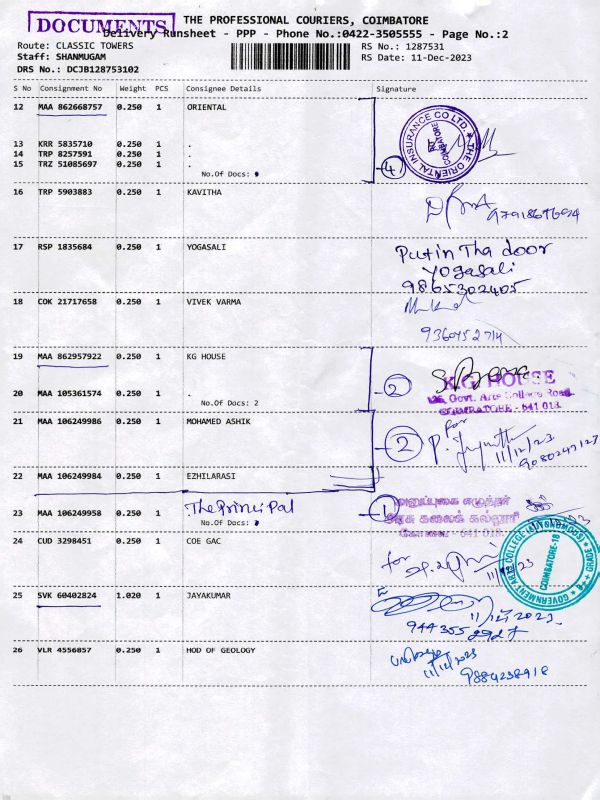 DOCUMENTS
THE PROFESSIONAL COURIERS, COIMBATORE
Delivery Runsheet - PPP - Phone No.:0422-3505555 - Page No.:2
Route: CLASSIC TOWERS
RS No.: 1287531
Staff: SHANMUGAM
RS Date: 11-Dec-2023
DRS No.: DCJB128753102
S No Consignment No Weight PCS Consignee Details Signature
12 MAA 862668757 0.250 1 ORIENTAL
THE ORIENTAL INSURANCE CO LTD.
COIMBATORE
13 KRR 5835710 0.250 1 .
14 TRP 8257591 0.250 1 .
15 TRZ 51085697 0.250 1 .
No.Of Docs:
4
16 TRP 5903883 0.250 1 KAVITHA
17 RSP 1835684 0.250 1 YOGASALI
Put in Tha door
yogasali
9865302405
18 COK 21717658 0.250 1 VIVEK VARMA
9360452714
19 MAA 862957922 0.250 1 KG HOUSE
2
K.G. HOUSE
20 MAA 105361574 0.250 1 .
No.Of Docs: 2
Govt. Arts College Road,
COIMBATORE - 641 018.
21 MAA 106249986 0.250 1 MOHAMED ASHIK
2
for
11/12/23
9080247127
22 MAA 106249984 0.250 1 EZHILARASI
23 MAA 106249958 0.250 1 The Principal
No.Of Docs:
1
அனுப்புகை எழுத்தர்
அரசு கலைக் கல்லூரி
கோவை - 641 018.
24 CUD 3298451 0.250 1 COE GAC
for
GOVERNMENT ARTS COLLEGE (AUTONOMOUS)
COIMBATORE-18
25 SVK 60402824 1.020 1 JAYAKUMAR
11/12/2023
26 VLR 4556857 0.250 1 HOD OF GEOLOGY
11/12/2023
9884238918